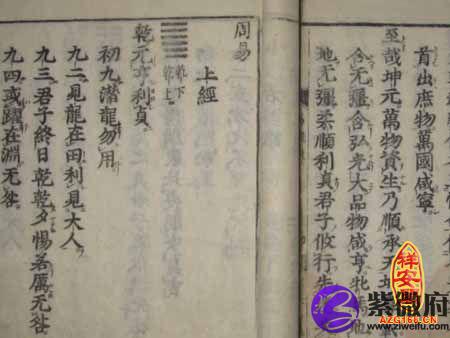 首出庶物萬國咸寧
至哉坤元萬物資生乃順承天坤
含无疆含弘光大品物咸亨牝 地
地无彊柔順利貞君子攸行先
周易
上經
乾下
乾上
乾元亨利貞
初九潛龍勿用
九二見龍在田利見大人
九三君子終日乾乾夕惕若厲无咎
九四或躍在淵无咎
祥安閣
AZG168.CN
紫微府
www.ziweifu.com